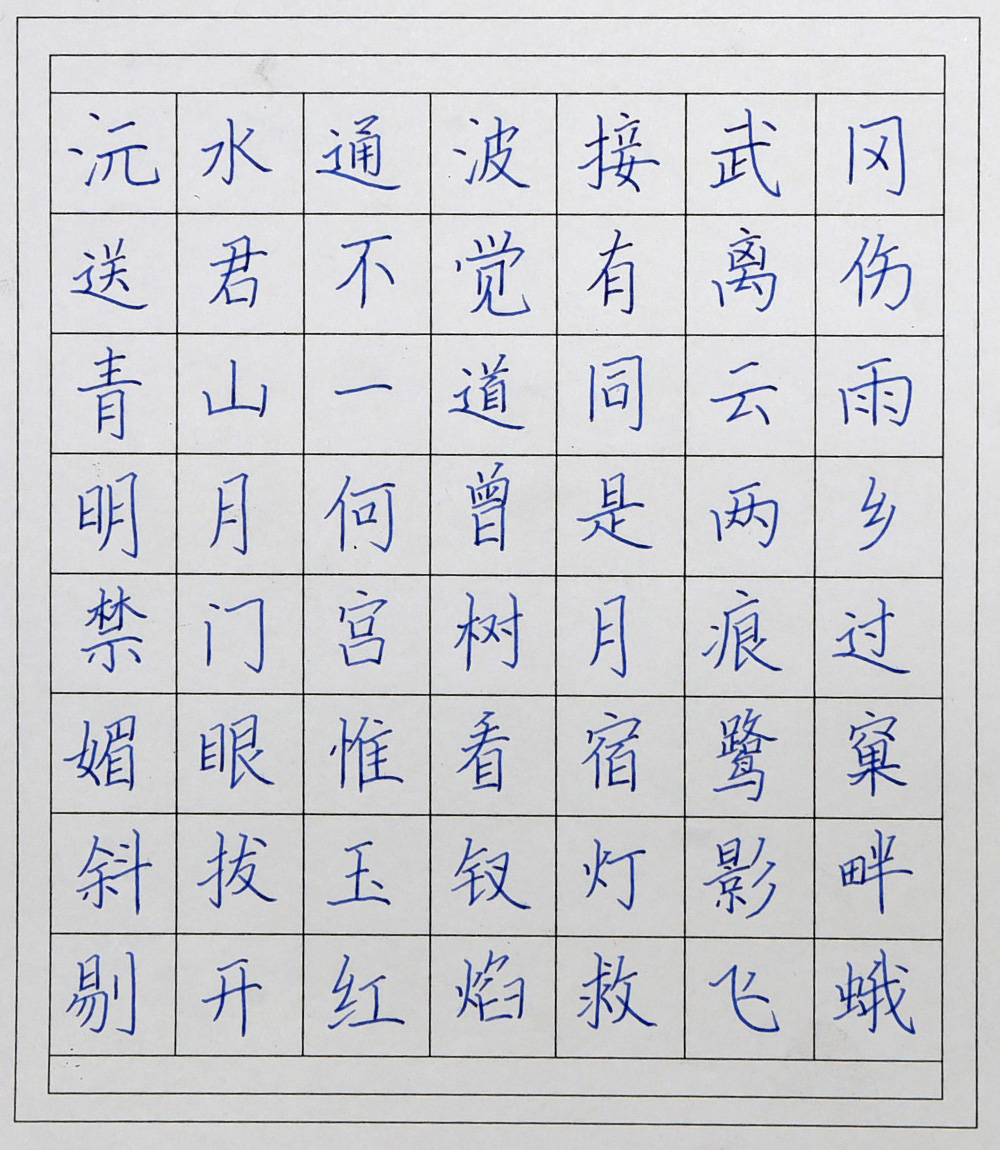 沅水通波接武冈
送君不觉有离伤
青山一道同云雨
明月何曾是两乡
禁门宫树月痕过
媚眼惟看宿鹭窠
斜拔玉钗灯影畔
剔开红焰救飞蛾